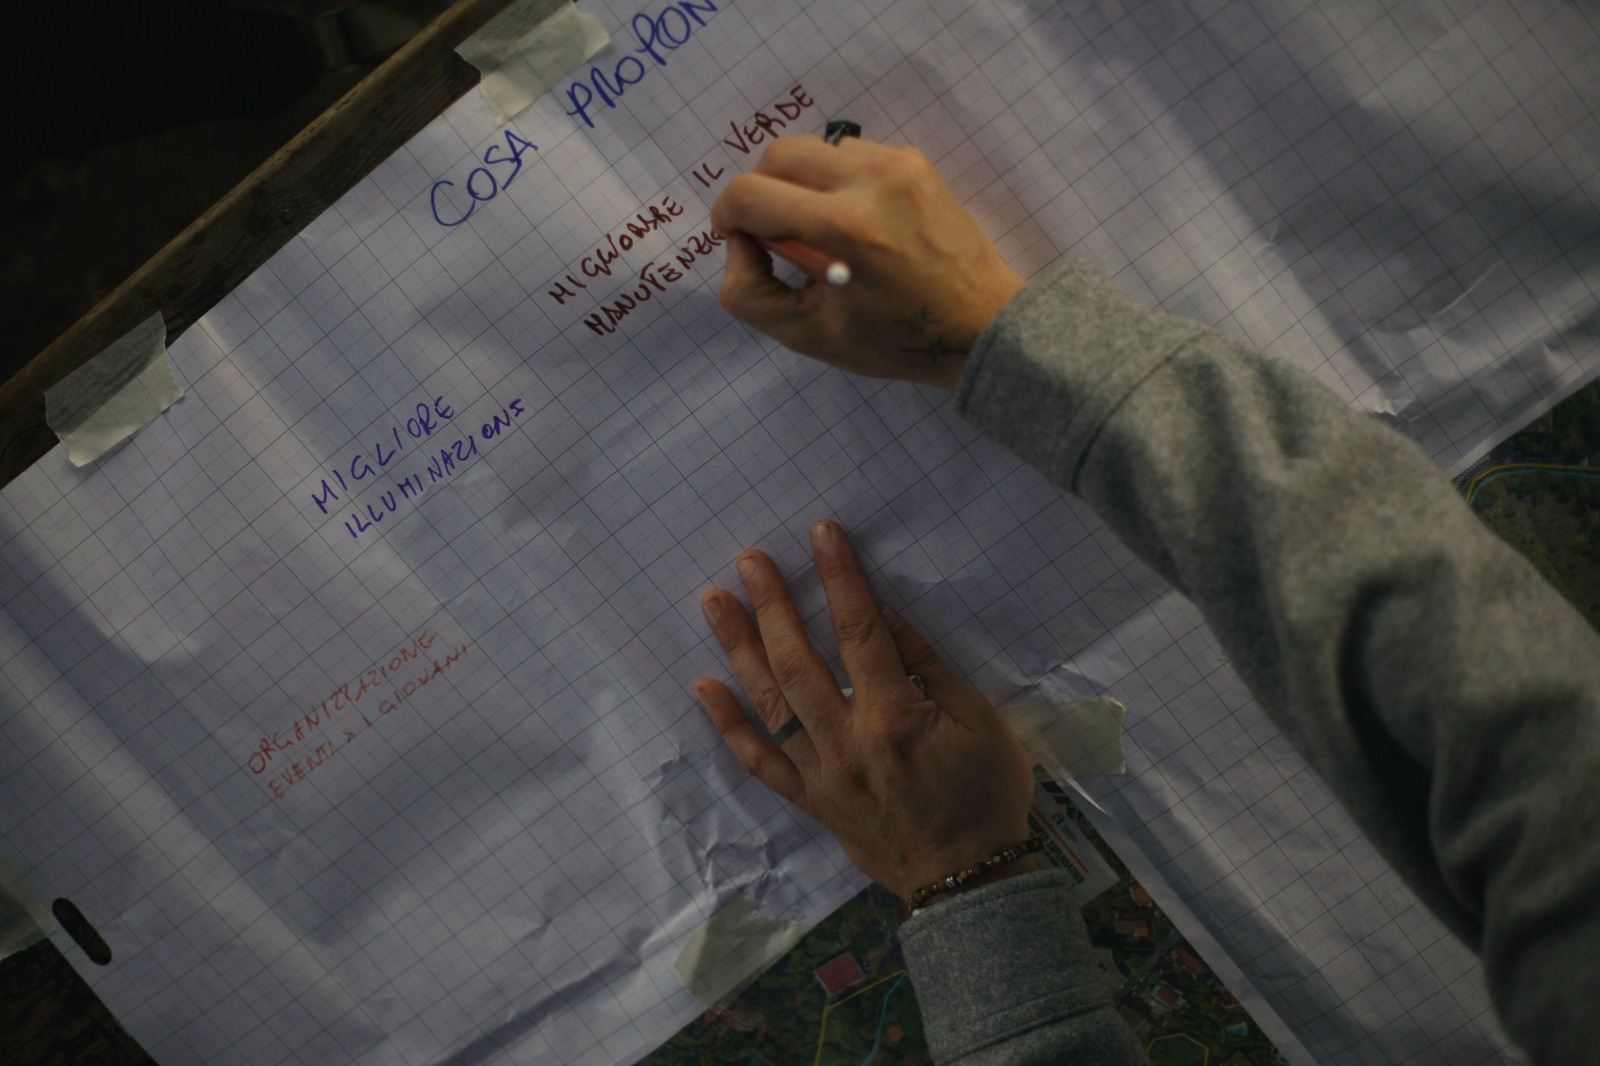 COSA PROPON
MIGLIORARE IL VERDE
MANUTENZIO
MIGLIORE
ILLUMINAZIONE
ORGANIZZAZIONE
EVENTI X I GIOVANI